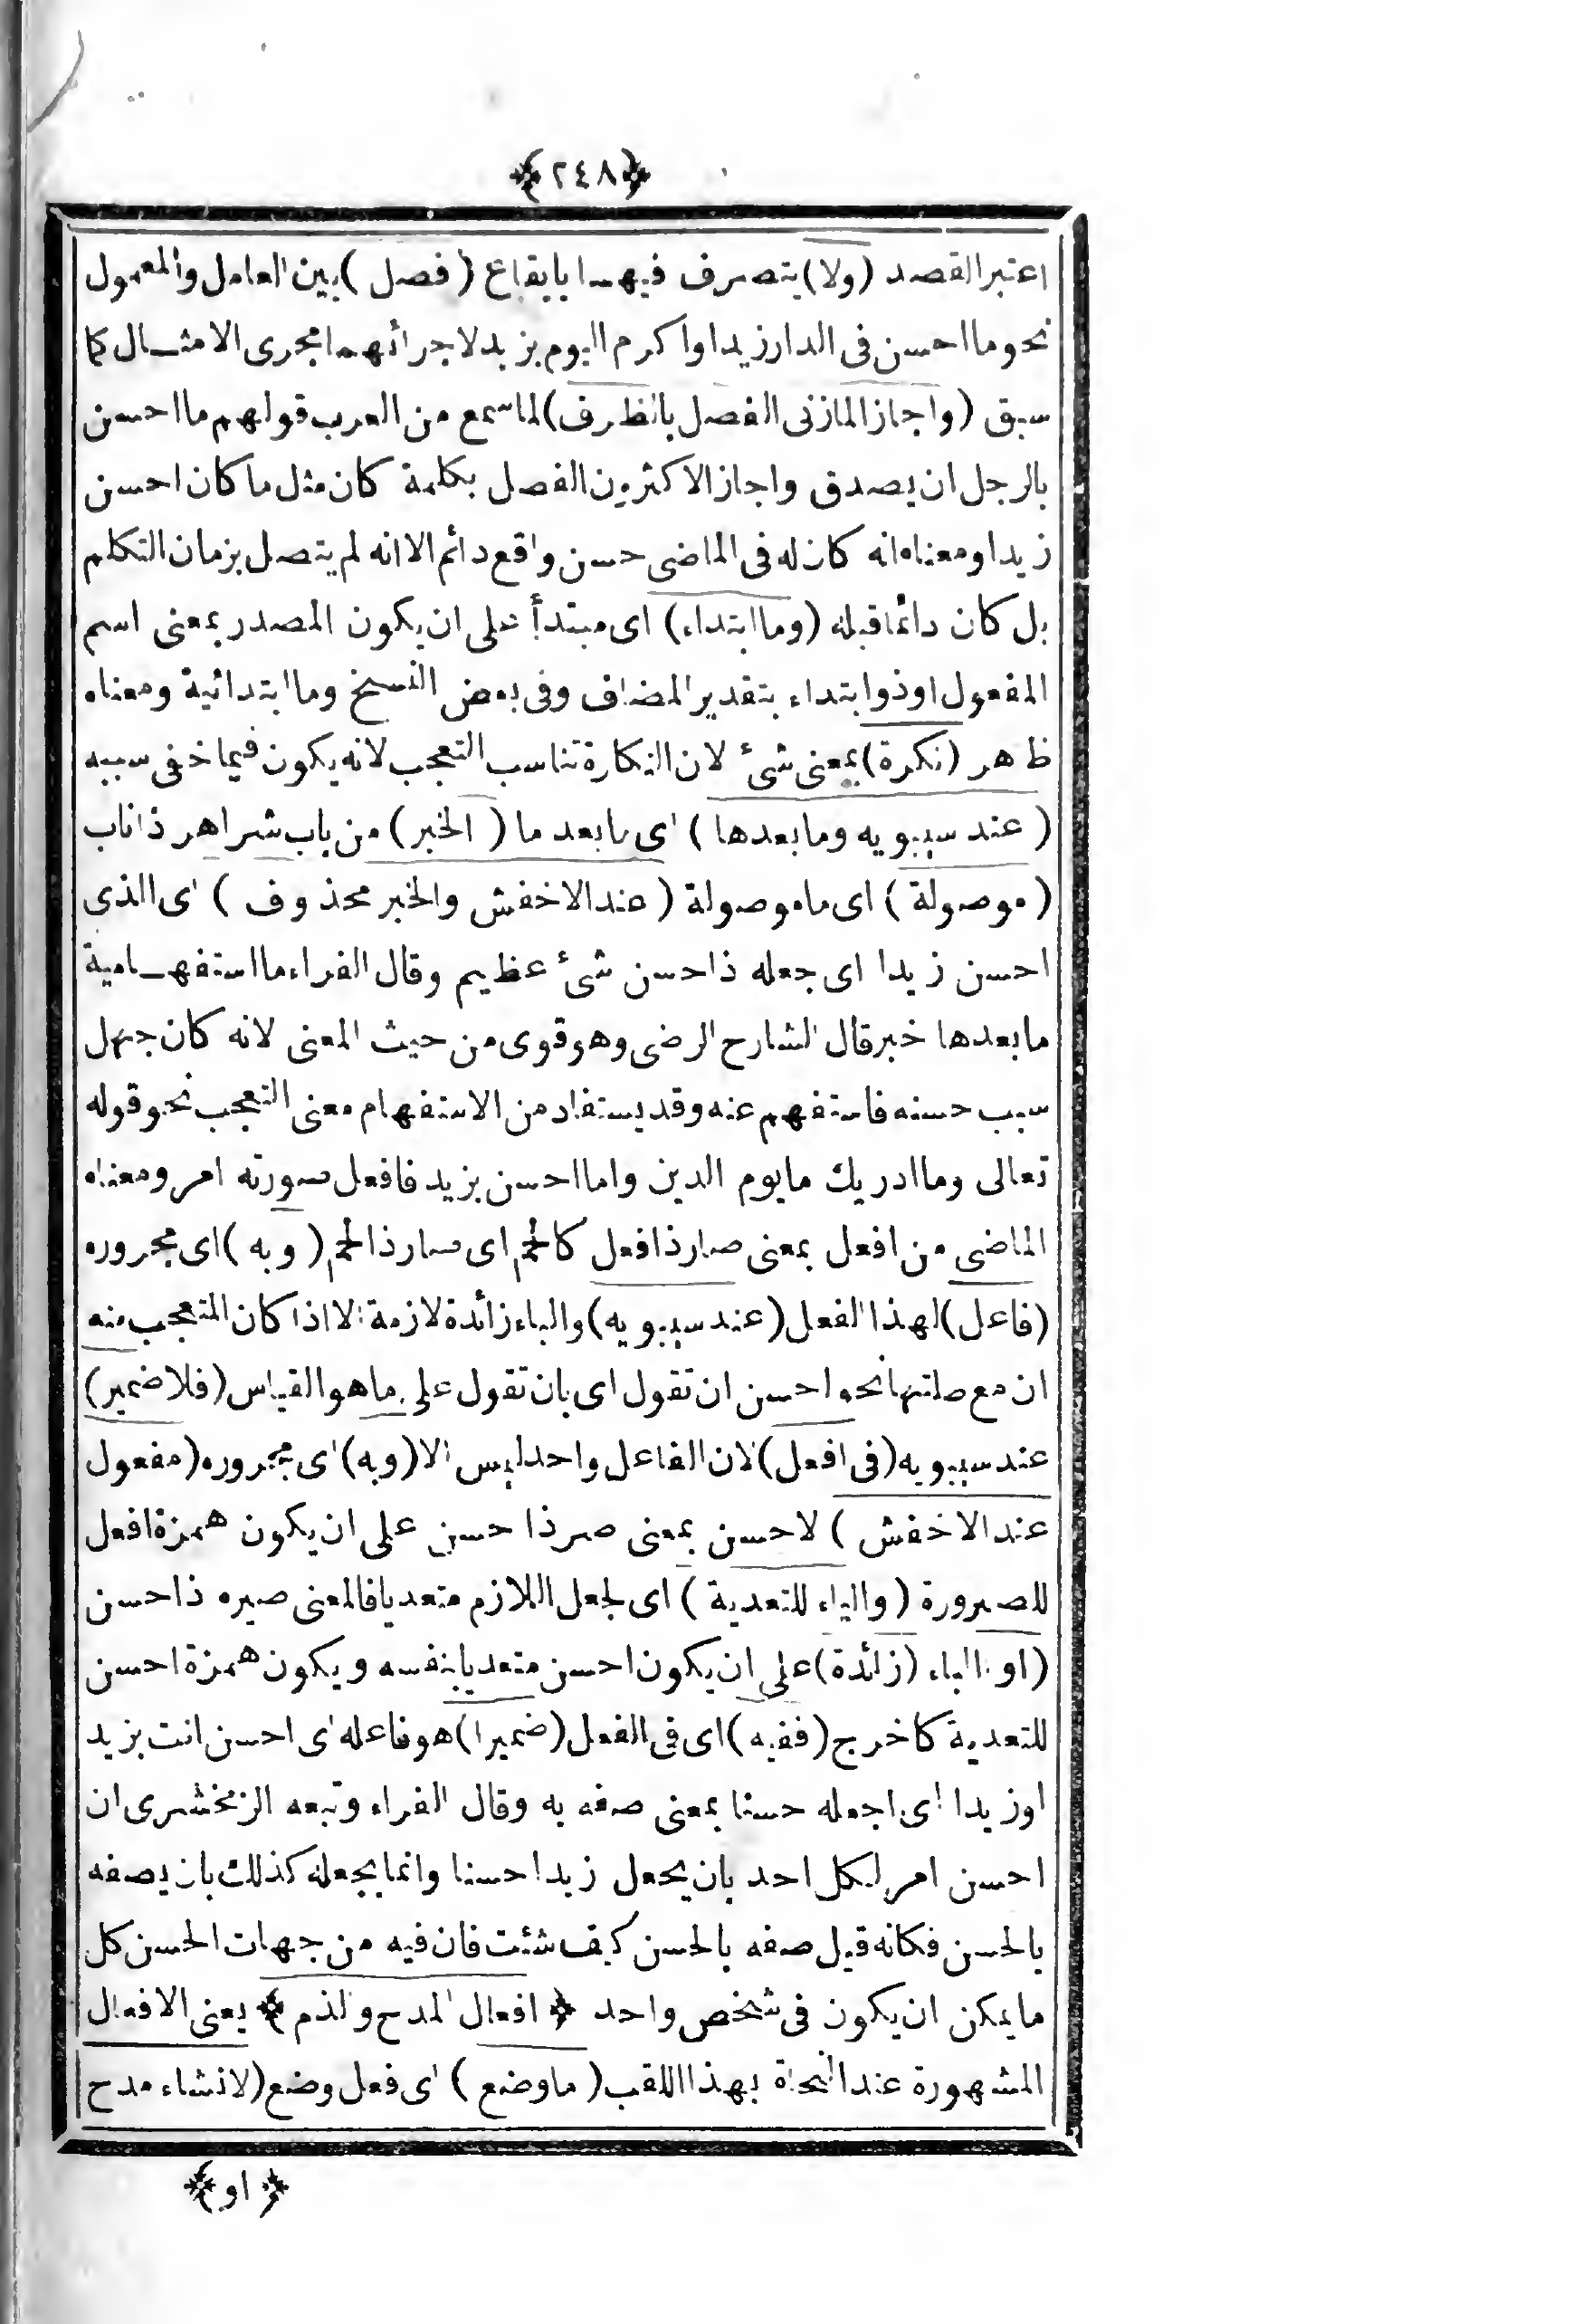 ﴿٢٤٨﴾
اعتبر القصد (ولا) يتصرف فيهما بايقاع (فصل) بين العامل والمعمول
نحو ما احسن فى الدار زيدا واكرم اليوم بزيد لاجرائهما مجرى الامثال كما
سبق (واجاز المازنى الفصل بالظرف) لما سمع من العرب قولهم ما احسن
بالرجل ان يصدق واجاز الاكثرون الفصل بكلمة كان مثل ما كان احسن
زيدا ومعناه انه كان له فى الماضى حسن واقع دائم الا انه لم يتصل بزمان التكلم
بل كان دائما قبله (وما ابتداء) اى مبتدأ على ان يكون المصدر بمعنى اسم
المفعول او ذو ابتداء بتقدير المضاف وفى بعض النسخ وما ابتدائية ومعناه
ظاهر (نكرة) بمعنى شئ لان النكارة تناسب التعجب لانه يكون فيما خفى سببه
(عند سيبويه وما بعدها) اى ما بعد ما (الخبر) من باب شر اهر ذا ناب
(موصولة) اى ما موصولة (عند الاخفش والخبر محذوف) اى الذى
احسن زيدا اى جعله ذا حسن شئ عظيم وقال الفراء ما استفهامية
ما بعدها خبر قال الشارح الرضى وهو قوى من حيث المعنى لانه كان جهل
سبب حسنه فاستفهم عنه وقد يستفاد من الاستفهام معنى التعجب نحو قوله
تعالى وما ادريك ما يوم الدين واما احسن بزيد فافعل صورته امر ومعناه
الماضى من افعل بمعنى صار ذا فعل كالحم اى صار ذا لحم (وبه) اى مجروره
(فاعل) لهذا الفعل (عند سيبويه) والباء زائدة لازمة الا اذا كان المتعجب منه
ان مع صلتها نحو احسن ان تقول اى بان تقول على ما هو القياس (فلا ضمير)
عند سيبويه (فى افعل) لان الفاعل واحد ليس الا (وبه) اى مجروره (مفعول
عند الاخفش) لاحسن بمعنى صر ذا حسن على ان يكون همزة افعل
للصيرورة (والباء للتعدية) اى لجعل اللازم متعديا فالمعنى صيره ذا حسن
(او) الباء (زائدة) على ان يكون احسن متعديا بنفسه ويكون همزة احسن
للتعدية كاخرج (ففيه) اى فى الفعل (ضمير ا) هو فاعله اى احسن انت بزيد
او زيدا اى اجعله حسنا بمعنى صفه به وقال الفراء وتبعه الزمخشرى ان
احسن امر لكل احد بان يجعل زيدا حسنا وانما يجعله كذلك بان يصفه
بالحسن فكانه قيل صفه بالحسن كيف شئت فان فيه من جهات الحسن كل
ما يمكن ان يكون فى شخص واحد ﴿افعال المدح والذم﴾ يعنى الافعال
المشهورة عند النحاة بهذا اللقب (ما وضع) اى فعل وضع (لانشاء مدح
﴿او﴾